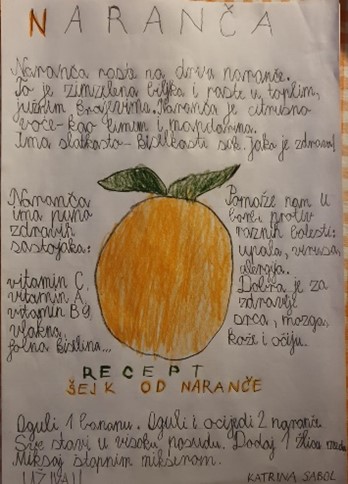 NARANČA
Naranča raste na drvu naranče.
To je zimzelena biljka i raste u toplim,
južnim krajevima. Naranča je citrusno
voće-kao limun i mandarina.
Ima slatkasto-kiselkasti sok. Jako je zdrava!
Naranča
ima puno
zdravih
sastojaka:
vitamin C,
vitamin A,
vitamin B9,
vlakna,
folna kiselina...
Pomaže nam u
borbi protiv
raznih bolesti:
upala, virusa,
alergija.
Dobra je za
zdravlje
srca, mozga,
kože i očiju.
RECEPT
ŠEJK OD NARANČE
Oguli 1 bananu. Oguli i ocijedi 2 naranče.
Sve stavi u visoku posudu. Dodaj 1 žlicu meda.
Miksaj štapnim mikserom.
UŽIVAJ!
KATRINA SABOL